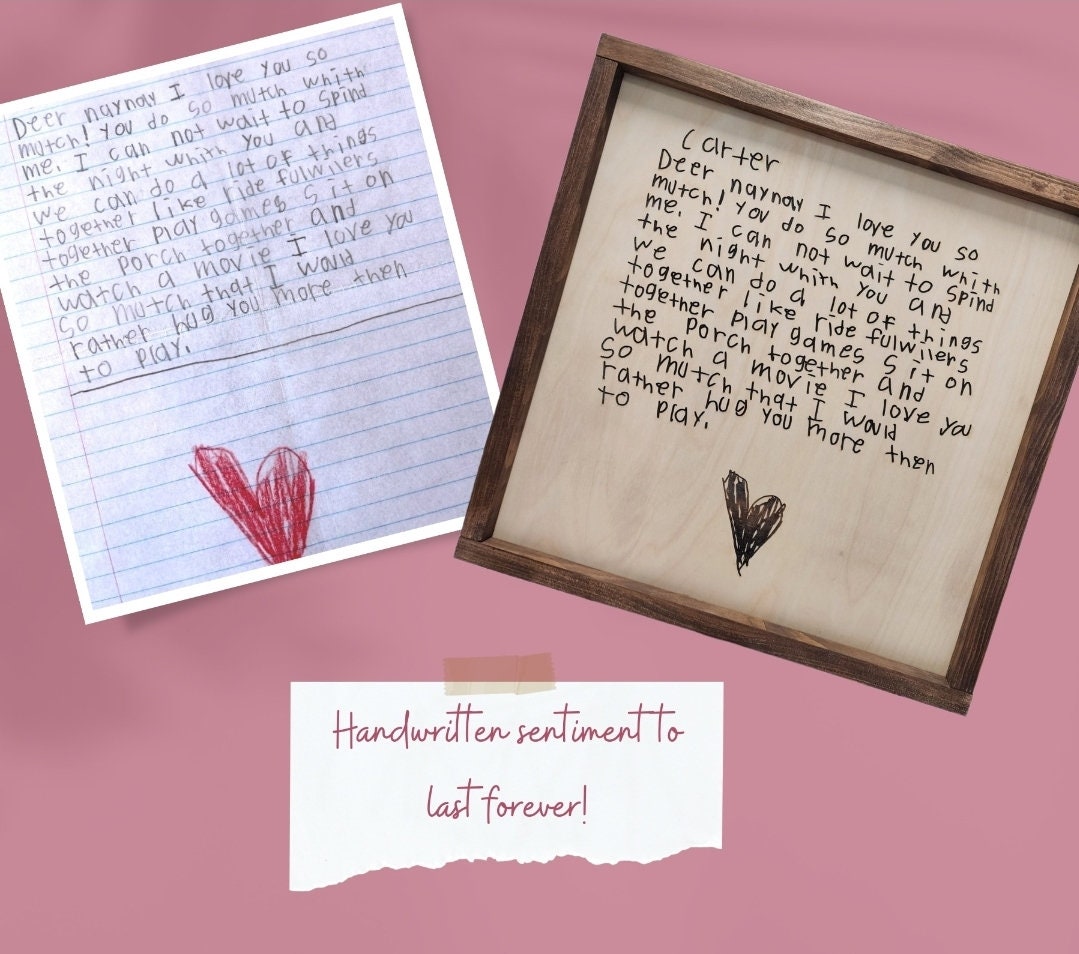 Deer naynay I love you so
mutch! you do so mutch whith
me. I can not wait to spind
the night whith you and
we can do a lot of things
together like ride fulwilers
together play games s it on
the porch together and
watch a movie I love you
so mutch that I would
rather hug you more then
to play.
Carter
Deer naynay I love you so
mutch! you do so mutch whith
me. I can not wait to spind
the night whith you and
we can do a lot of things
together like ride fulwilers
together play games s it on
the porch together and
watch a movie I love you
so mutch that I would
rather hug you more then
to play.
Handwritten sentiment to
last forever!